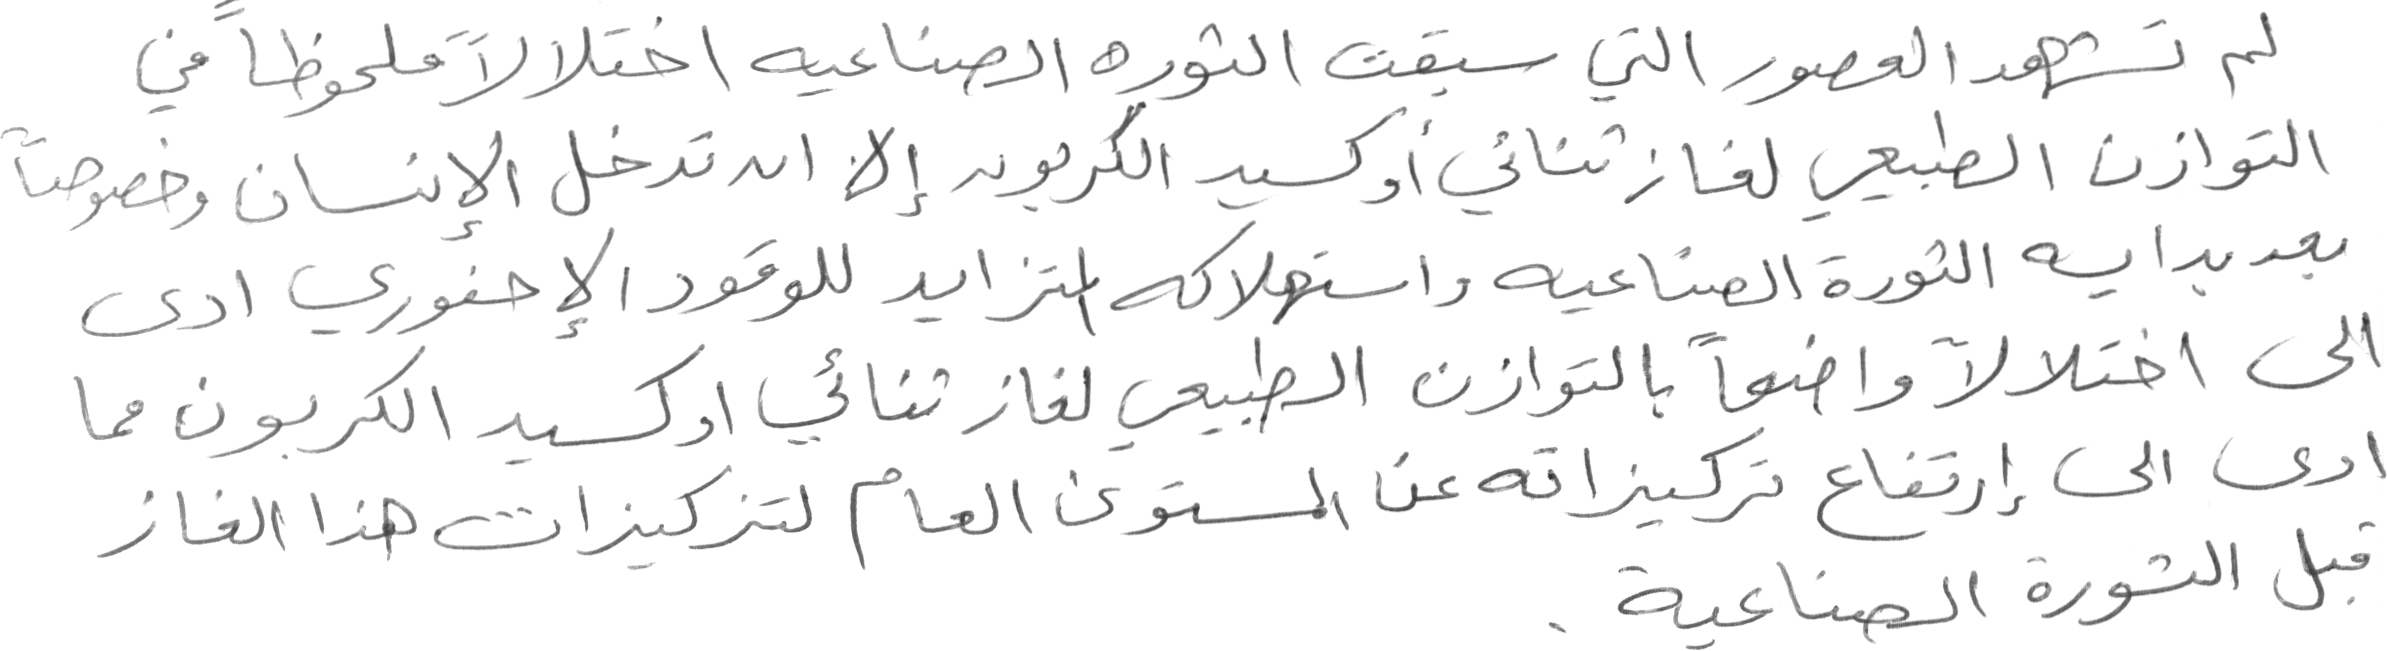 لم تشهد العصور التي سبقت الثوره الصناعيه اختلالاً ملحوظاً في
التوازن الطبيعي لغاز ثنائي أوكسيد الكربون إلا ان تدخل الإنسان وخصوصاً
بعد بدايه الثورة الصناعيه واستهلاكه المتزايد للوقود الإحفوري ادى
الى اختلالاً واضحاً بالتوازن الطبيعي لغاز ثنائي اوكسيد الكربون مما
ادى الى إرتفاع تركيزاته عن المستوى العام لتركيزات هذا الغاز
قبل الثورة الصناعية .